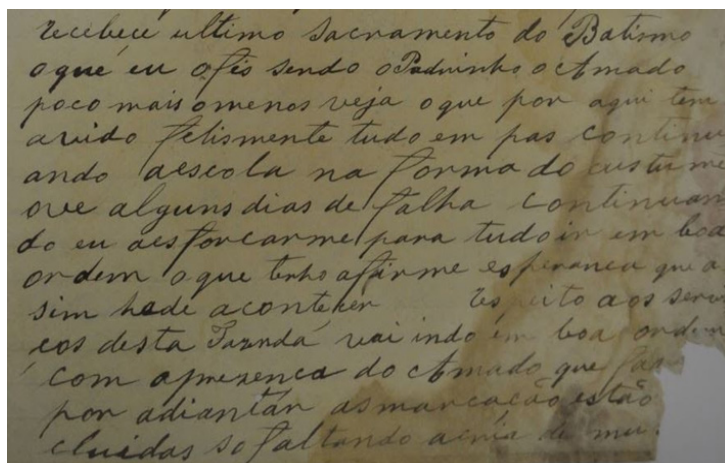 recebece ultimo Sacramento do Batismo
oque eu ofis sendo o Padrinho o Amado
poco mais omenos veja oque por aqui tem
avido felismente tudo em pas continu
ando aescola na forma do custume
ove alguns dias de falha continuan
do eu aesforcarme para tudo ir em boa
ordem oque tenho afirme esperanca que a
sim hade aconteser Respeito aos servi
cos desta Fazenda vai indo em boa ordem
com aprezenca do Amado que fas
por adiantar asmarcacão estão
cluidas so faltando de